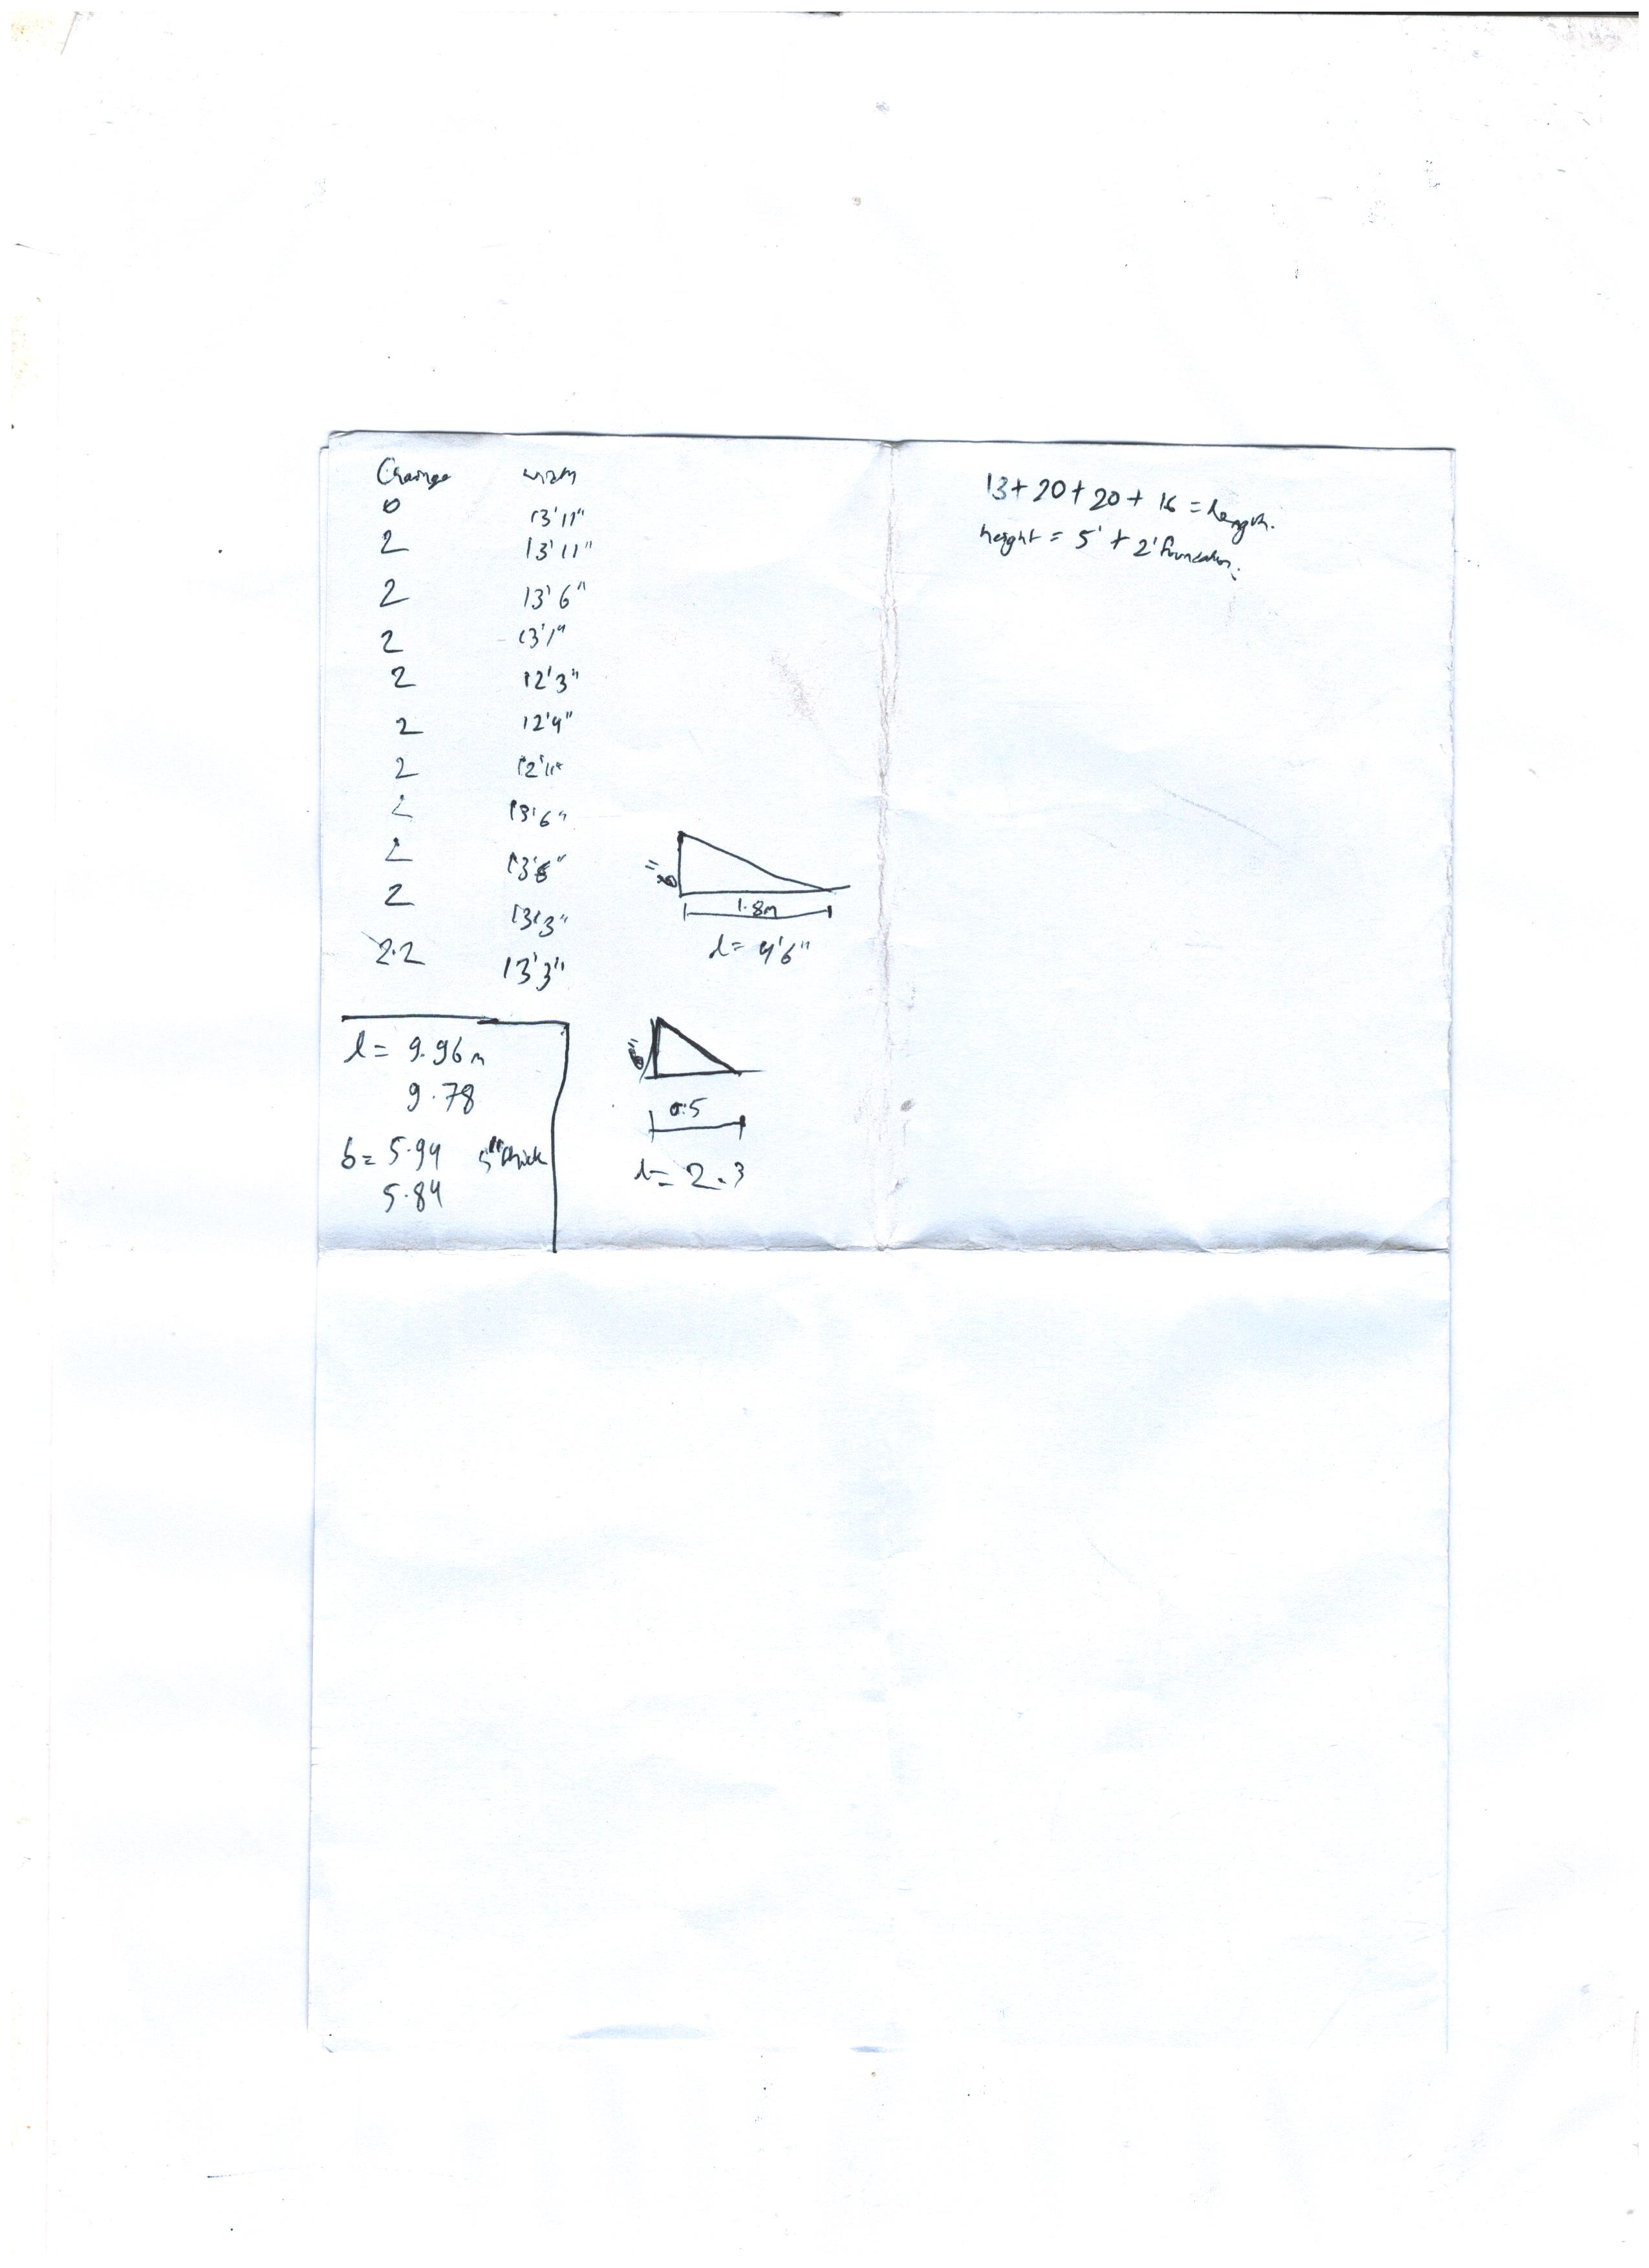 Chainage width
0 13'11"
2 13'11"
2 13'6"
2 13'1"
2 12'3"
2 12'9"
2 12'11"
2 13'6"
2 13'6"
2 13'3"
2.2 13'3"
1.8m
l= 4'6"
l= 9.96m
9.78
b= 5.94 5" thick
5.84
0.5
l= 2.3
13+20+20+16 = length.
height = 5' + 2' foundation.